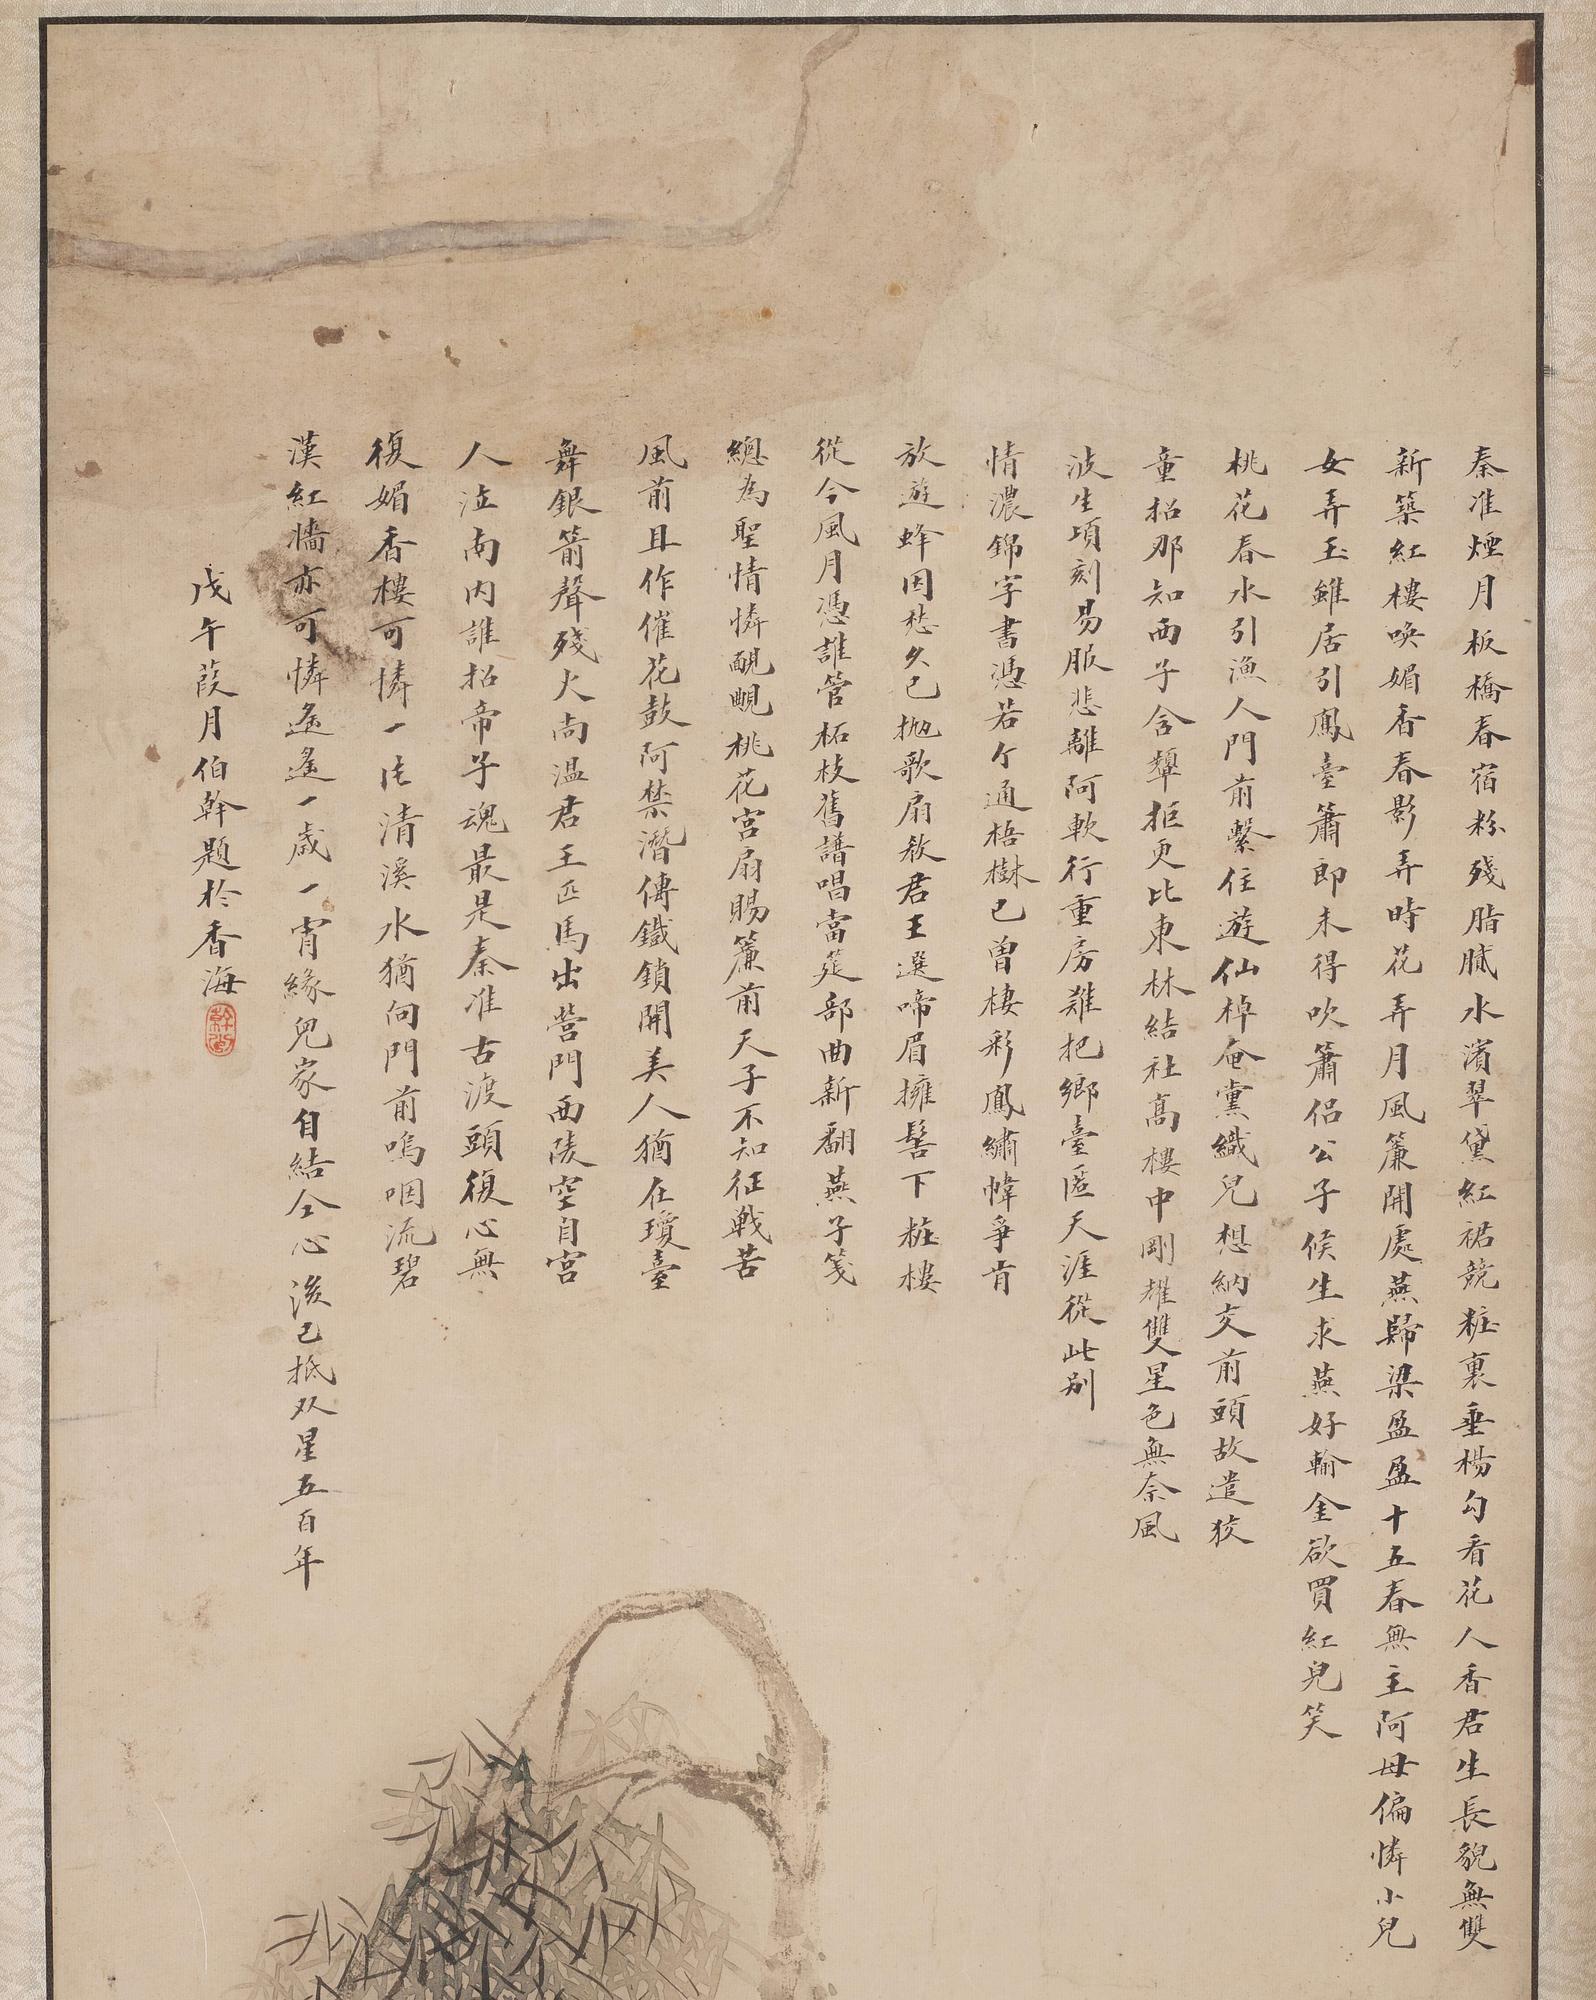 秦准煙月板橋春宿粉殘脂膩水濱翠黛紅裙競粧裏垂楊勾看花人香君生長貌無雙
新築紅樓喚媚香春影弄時花弄月風簾開處燕歸梁盈盈十五春無主阿母偏憐小兒
女弄玉雖居引鳳臺簫郎未得吹簫侶公子候生求燕好輸金欲買紅兒笑
桃花春水引漁人門前繫住遊仙棹奄黨織兒想納交前頭故遣狡
童招那知西子含顰拒更比東林結社高樓中剛耀雙星色無奈風
波生頃刻易服悲離阿軟行重房難把鄉臺匿天涯從此別
情濃錦字書憑若个通梧樹已曾棲彩鳳繡幃爭肯
放遊蜂因愁久已拋歌扇敎君王選啼眉擁髻下粧樓
從今風月憑誰管柘枝舊譜唱當筵部曲新翻燕子箋
總為聖情憐靦覥桃花宮扇賜簾前天子不知征戦苦
風前且作催花鼓阿禁潛傳鐵鎖開美人猶在瓊臺
舞銀箭聲殘火尚温君王匹馬出營門西陵空自宮
人泣南內誰招帝子魂最是秦准古渡頭復心無
復媚香樓可憐一片清溪水猶向門前嗚咽流碧
漢紅牆亦可憐遙遙一歲一宵緣兒家自結仝心後已抵双星五百年
戊午葭月伯幹題於香海